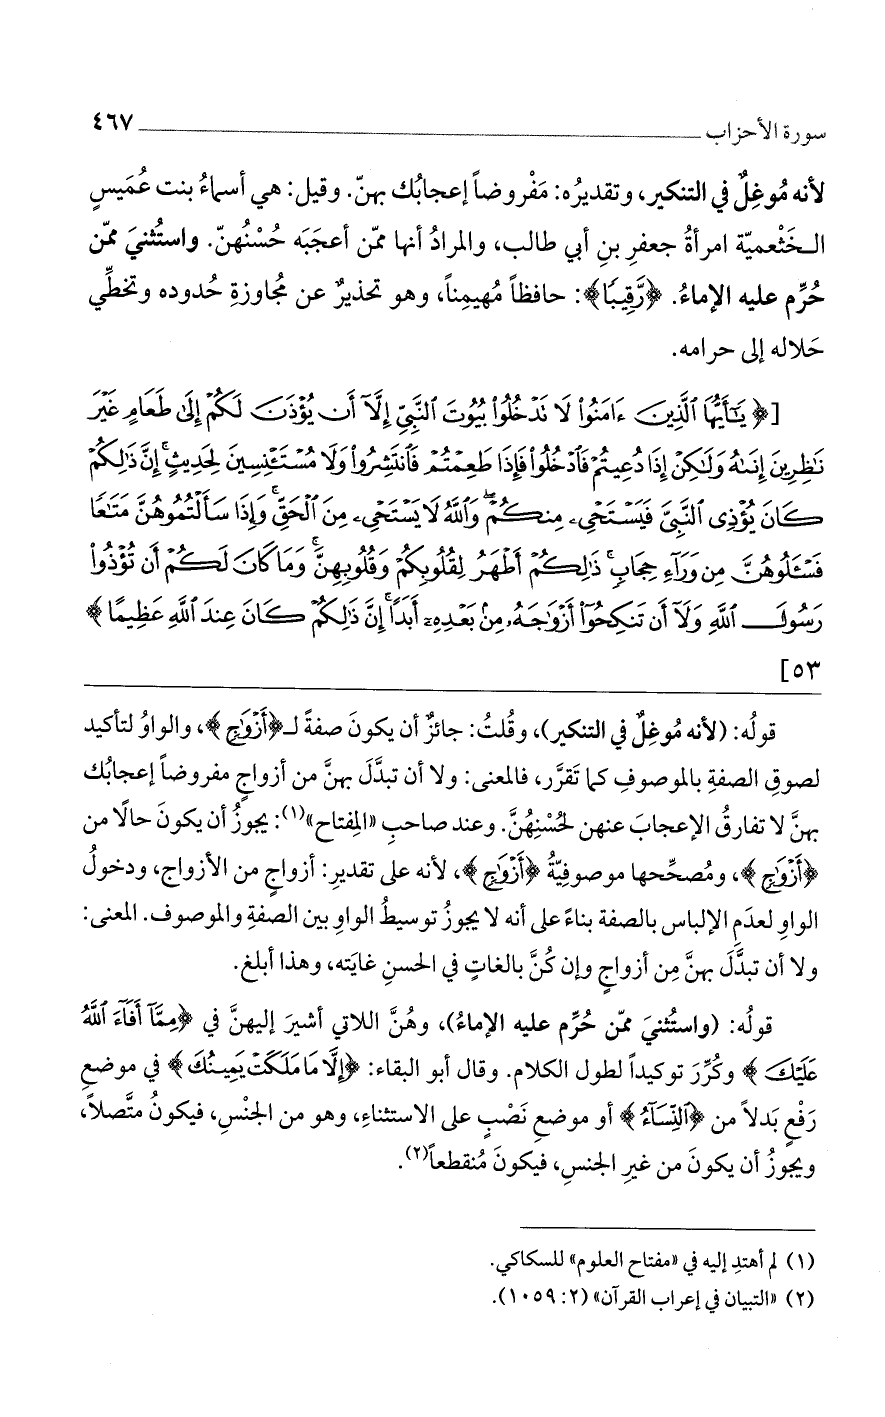 سورة الأحزاب ٤٦٧
لأنه مُوغِلٌ في التنكير، وتقديرُه: مَفْروضاً إعجابُك بهنّ. وقيل: هي أسماءُ بنت عُمَيسٍ
الـخَثْعميّة امرأةُ جعفرِ بنِ أبي طالب، والمرادُ أنها ممّن أعجَبَه حُسْنُهنّ. واستُثنيَ ممّن
حُرِّم عليه الإماءُ. ﴿رَّقِيبًا﴾: حافظاً مُهيمِناً، وهو تحذيرٌ عن مُجاوزةِ حُدوده وتخطِّي
حَلاله إلى حرامه.
[﴿ يَٰٓأَيُّهَا ٱلَّذِينَ ءَامَنُوا۟ لَا تَدْخُلُوا۟ بُيُوتَ ٱلنَّبِىِّ إِلَّآ أَن يُؤْذَنَ لَكُمْ إِلَىٰ طَعَامٍ غَيْرَ
نَٰظِرِينَ إِنَىٰهُ وَلَٰكِنْ إِذَا دُعِيتُمْ فَٱدْخُلُوا۟ فَإِذَا طَعِمْتُمْ فَٱنتَشِرُوا۟ وَلَا مُسْتَـْٔنِسِينَ لِحَدِيثٍ ۚ إِنَّ ذَٰلِكُمْ
كَانَ يُؤْذِى ٱلنَّبِىَّ فَيَسْتَحْىِۦ مِنكُمْ ۖ وَٱللَّهُ لَا يَسْتَحْىِۦ مِنَ ٱلْحَقِّ ۚ وَإِذَا سَأَلْتُمُوهُنَّ مَتَٰعًا
فَسْـَٔلُوهُنَّ مِن وَرَآءِ حِجَابٍ ۚ ذَٰلِكُمْ أَطْهَرُ لِقُلُوبِكُمْ وَقُلُوبِهِنَّ ۚ وَمَا كَانَ لَكُمْ أَن تُؤْذُوا۟
رَسُولَ ٱللَّهِ وَلَآ أَن تَنكِحُوٓا۟ أَزْوَٰجَهُۥ مِنۢ بَعْدِهِۦٓ أَبَدًا ۚ إِنَّ ذَٰلِكُمْ كَانَ عِندَ ٱللَّهِ عَظِيمًا ﴾
٥٣]
قولُه: (لأنه مُوغِلٌ في التنكير)، وقُلتُ: جائزٌ أن يكونَ صفةً لـ﴿أَزْوَٰجٍ﴾، والواوُ لتأكيد
لصوقِ الصفةِ بالموصوفِ كما تَقرَّر، فالمعنى: ولا أن تبدَّلَ بهنَّ من أزواجٍ مفروضاً إعجابُك
بهنَّ لا تفارقُ الإعجابَ عنهن لحُسْنِهُنَّ. وعند صاحبِ «المِفتاح»(١): يجوزُ أن يكونَ حالًا من
﴿أَزْوَٰجٍ﴾، ومُصحِّحها موصوفِيّةُ ﴿أَزْوَٰجٍ﴾، لأنه على تقديرِ: أزواجٍ من الأزواجِ، ودخولُ
الواوِ لعدَمِ الإلباس بالصفة بناءً على أنه لا يجوزُ توسيطُ الواوِ بين الصفةِ والموصوف. المعنى:
ولا أن تبدَّلَ بهنَّ مِن أزواجٍ وإن كُنَّ بالغاتٍ في الحسنِ غايَته، وهذا أبلغ.
قولُه: (واستُثنيَ ممّن حُرِّم عليه الإماءُ)، وهُنَّ اللاتي أشيرَ إليهنَّ في ﴿مِمَّآ أَفَآءَ ٱللَّهُ
عَلَيْكَ﴾ وكُرِّرَ توكيداً لطول الكلام. وقال أبو البقاء: ﴿إِلَّا مَا مَلَكَتْ يَمِينُكَ﴾ في موضعِ
رَفْعٍ بَدلاً من ﴿ٱلنِّسَآءُ﴾ أو موضعِ نَصْبٍ على الاستثناءِ، وهو من الجنْسِ، فيكونُ متَّصلاً،
ويجوزُ أن يكونَ من غيرِ الجنسِ، فيكونَ مُنقطعاً(٢).
(١) لم أهتدِ إليه في «مفتاح العلوم» للسكاكي.
(٢) «التبيان في إعراب القرآن» (٢: ١٠٥٩).